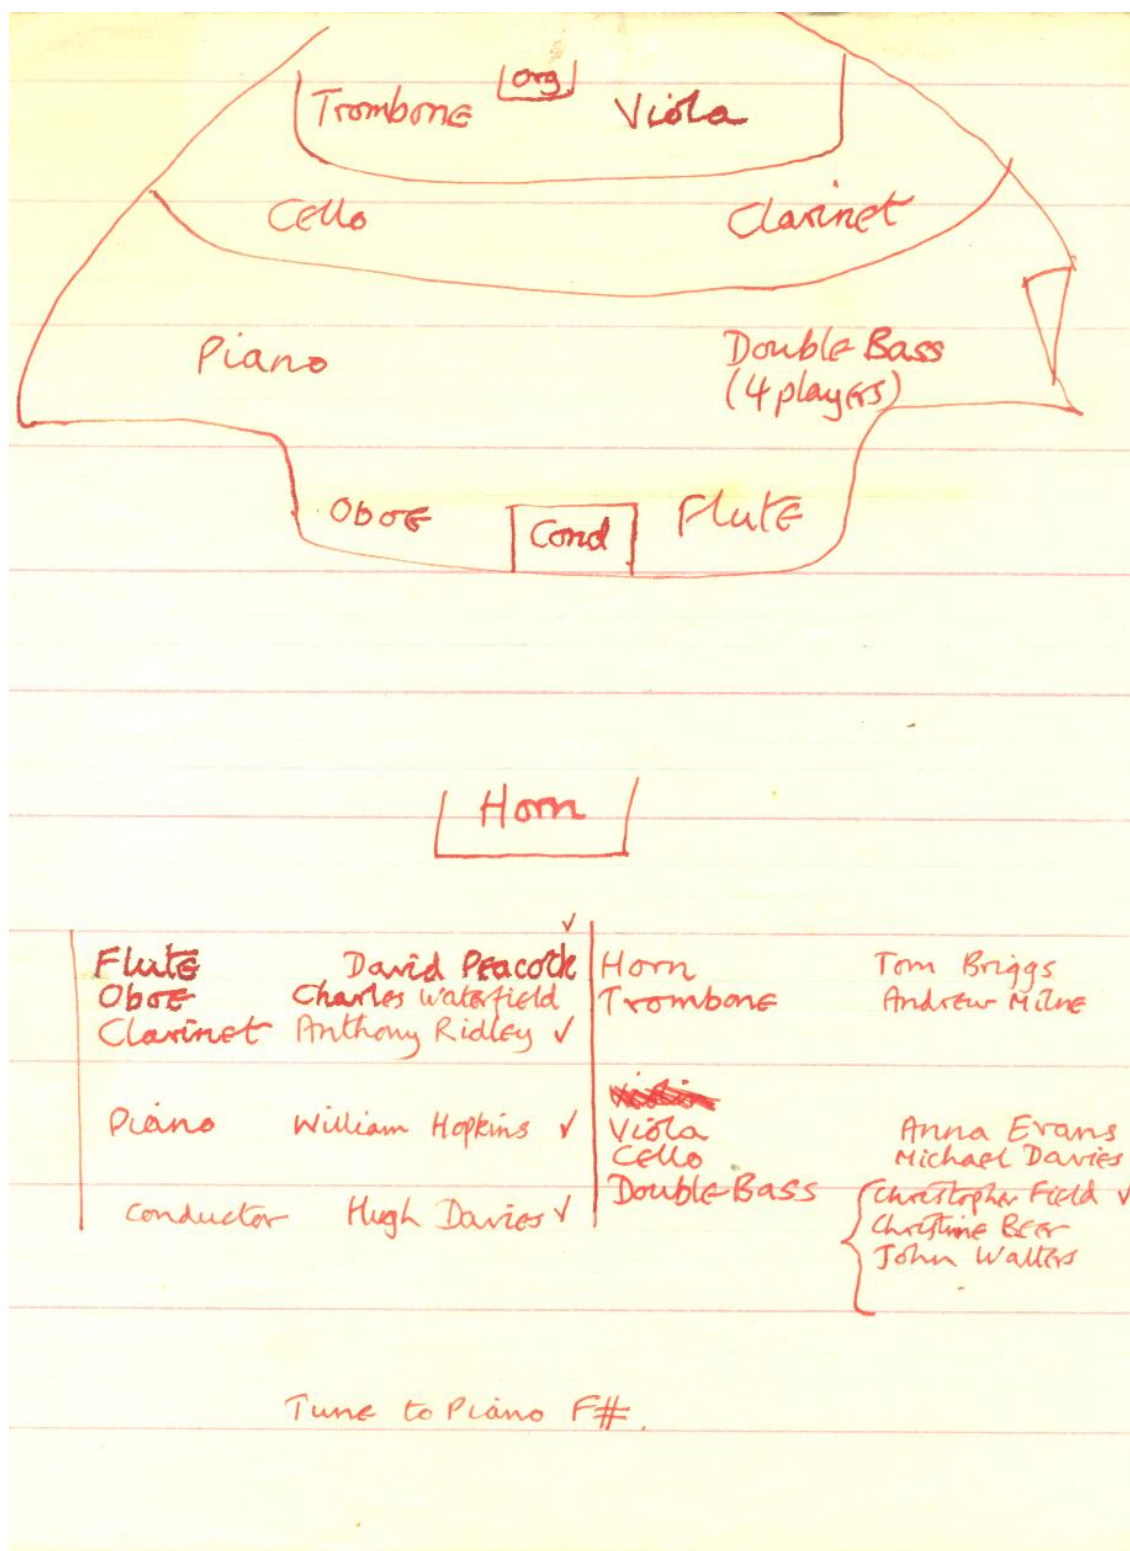 org
Trombone Viola
Cello Clarinet
Piano Double Bass
(4 players)
Oboe Cond Flute
Horn
Flute David Peacock ✓
Oboe Charles Waterfield
Clarinet Anthony Ridley ✓
Piano William Hopkins ✓
Conductor Hugh Davies ✓
Horn Tom Briggs
Trombone Andrew Milne
Viola Anna Evans
Cello Michael Davies
Double Bass Christopher Field ✓
Christine Beer
John Walters
Tune to Piano F#.